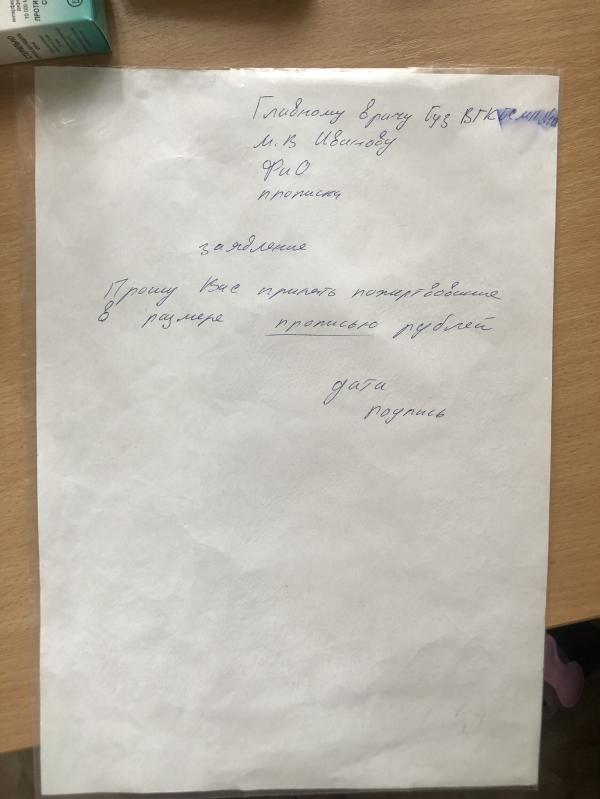 Главному врачу Гуз ВГКБСМП №
М.В Иванову
ФиО
прописка
заявление
Прошу Вас принять пожертвование
в размере прописью рублей
дата
подпись